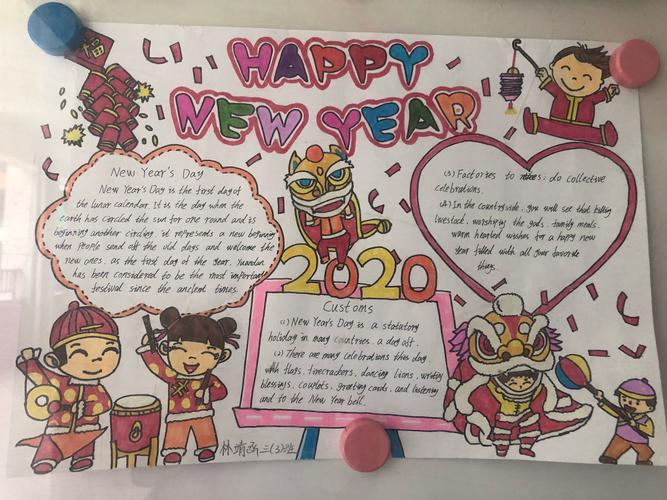 福
HAPPY
NEW YEAR
New Year's Day
New Year's Day is the first day of
the lunar calendar. It is the day when the
earth has circled the sun for one round and is
beginning another circling. it represents a new beginning
when people send off the old days and welcome the
new ones. as the first day of the year. Yuandan
has been considered to be the most important
festival since the ancient times.
2020
Customs
(1) New Year's Day is a statutory
holiday in many countries. a day off.
(2) There are many celebrations this day
with flags, firecrackers, dancing lions, writing
blessings, couplets, greeting cards, and listening
and to the New Year bell.
(3) Factories to do collective
celebrations.
(4) In the countryside, you will see that killing
livestock, worshiping the gods, family meals.
warm hearted wishes for a happy new
year filled with all your favorite
things.
林靖 三(3)班